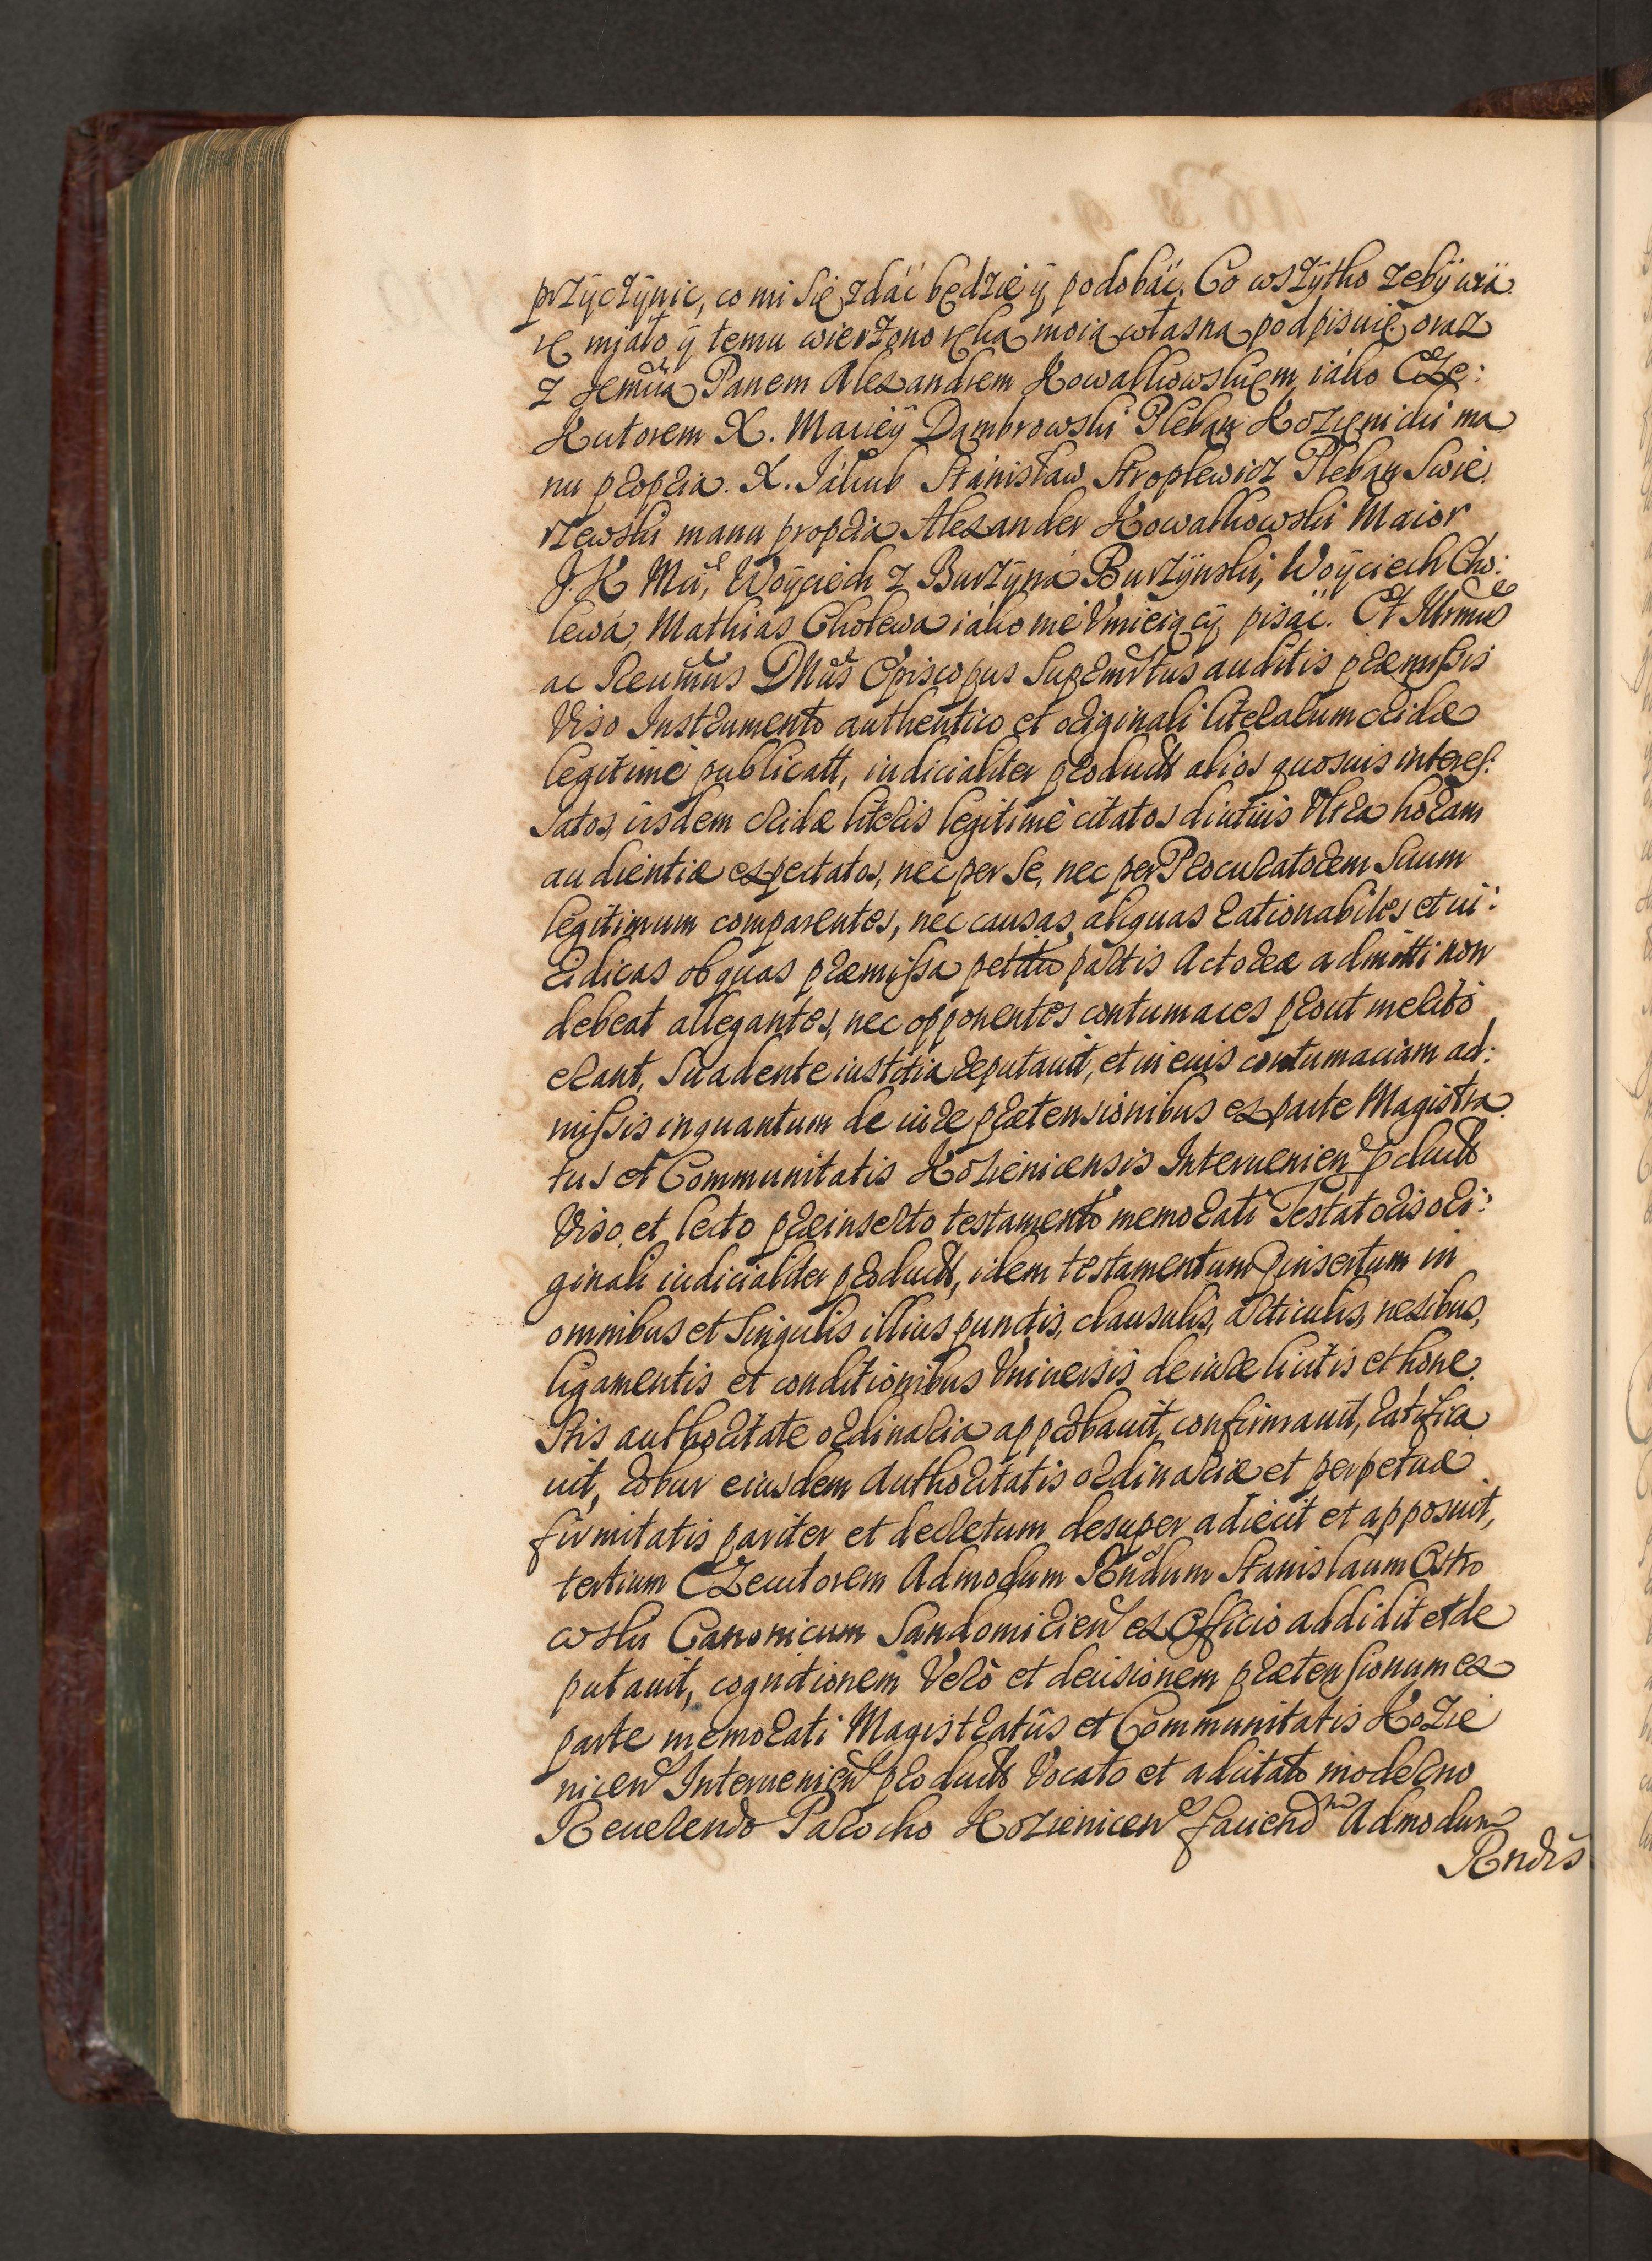 przyczynic, co mi się zdać będzie y podobać. Co wszytko zeby wia
rę miało y temu wierzono ręką moią własną podpisuię oraz
z Jemcią Panem Alexandrem Kowalkowskiem, iako Exe:
kutorem X. Maciey Dąmbrowski Pleban Kozienicki ma
nu propria. X. Jakub Stanisław Stroplewicz Pleban Swie
rzewski manu propria Alexander Kowalkowski Maior
J. K Mci, Woyciech z Burzyna Burzynski, Woyciech Cho:
lewa, Mathias Cholewa iako nie Umieiący pisać. Et Illrmus
ac Reumus Dnus Episcopus Supemrtus auditis præmissis
Viso Instrumento authentico et originali literarum cridæ
legitime publicatt, iudicialiter product alios quosuis interes:
satos, iisdem cridæ literis legitimè citatos diutius Ultra horam
audientiæ expectatos, nec per se, nec per Procuratorem suum
legitimum comparentes, nec causas aliquas rationabiles et iu:
ridicas ob quas præmissa petita partis Actoreæ admitti non
debeat allegantes, nec opponentes contumaces prout merito
erant, suadente iustitia reputauit, et in euis contumaciam ad:
missis inquantum de iure prætensionibus ex parte Magistra
tus et Communitatis Kozienicensis Interuenien pduct
Viso, et lecto præinserto testamento memorati Testatoris ori:
ginali iudicialiter product, idem testamentum pinsertum in
omnibus et singulis illius punctis, clausulis, articulis, nexibus,
ligamentis et conditionibus Uniuersis de iure licitis et hone
stis authoritate ordinaria approbauit, confirmauit, ratifica
uit, robur eiusdem Authoritatis ordinariæ et perpetuæ
firmitatis pariter et decretum desuper adiecit et apposuit,
tertium Executorem Admodum Rndum Stanislaum Ostro
wski Canonicum Sandomirien ex Officio addidit et de
putauit, cognitionem Verò et decisionem prætensionum ex
parte memorati Magistratûs et Communitatis Kozie
nicen Interuenien product Vocato et adcitato moderno
Reuerendo Parocho Kozienicen faciend Admodum
Rndis